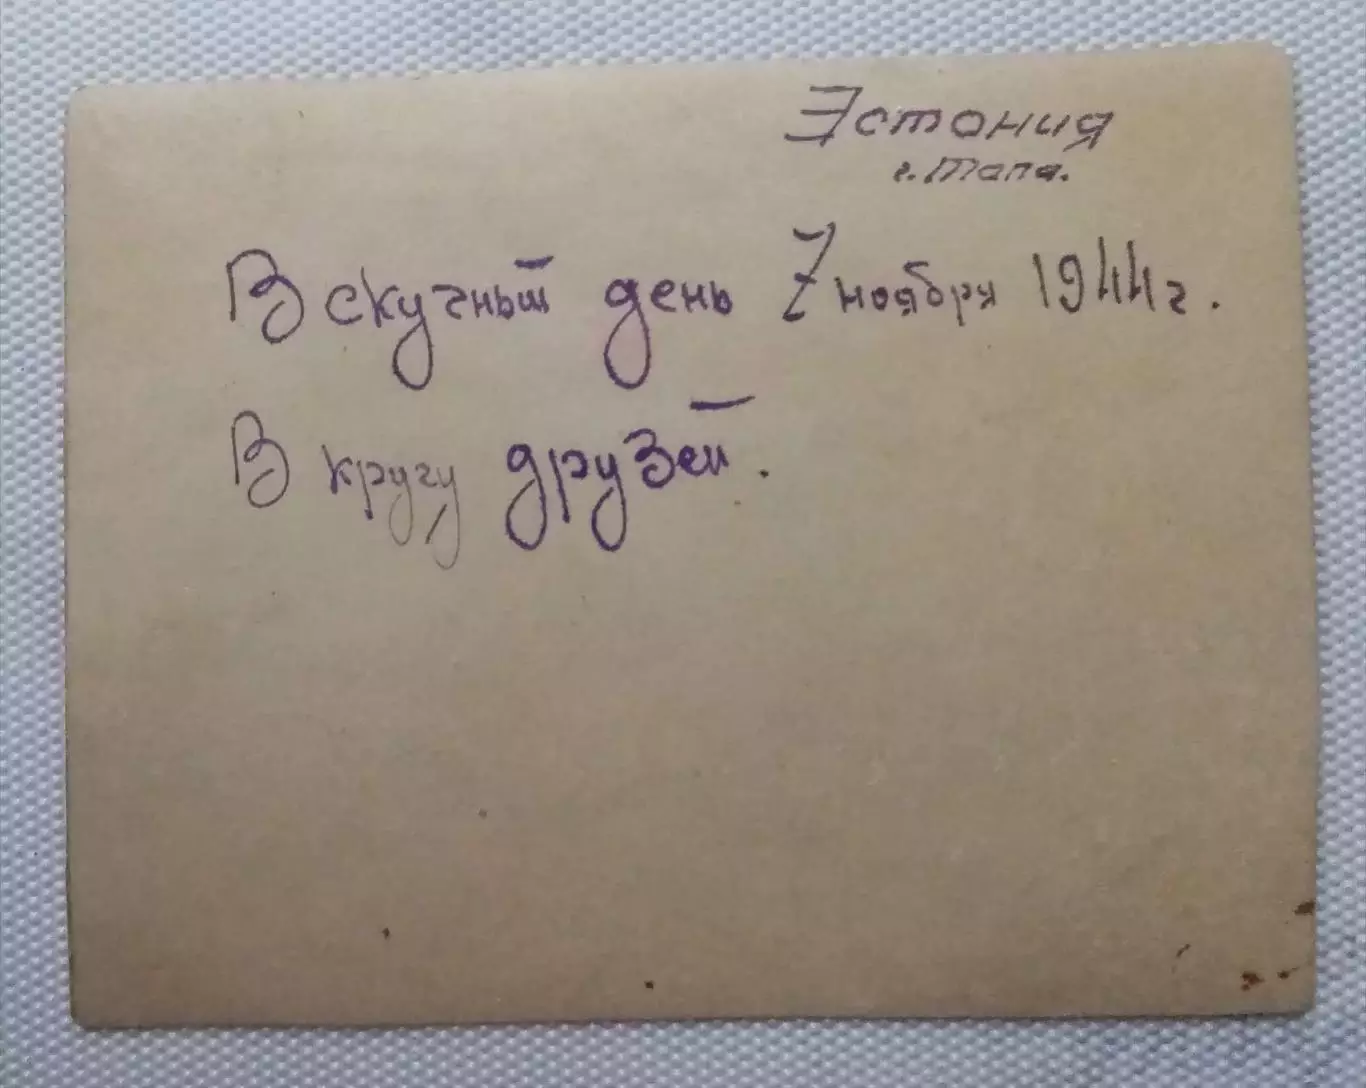 Эстония
г. Тапа.
В скучный день 7 ноября 1944 г.
В кругу друзей.